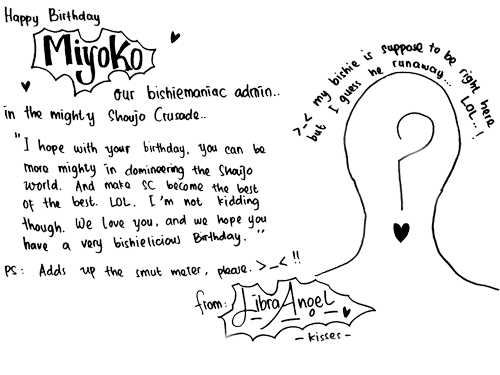 Happy Birthday
Miyoko
our bishiemaniac admin..
in the mighty Shoujo Crusade..
"I hope with your birthday, you can be
more mighty in domineering the Shoujo
world. And make SC become the best
of the best. LOL. I'm not kidding
though. We love you, and we hope you
have a very bishielicious Birthday."
PS: Adds up the smut meter, please. >_< !!
from: Libra Angel
- kisses -
>_< my bishie is suppose to be right here
but I guess he runaway... LOL..!
?